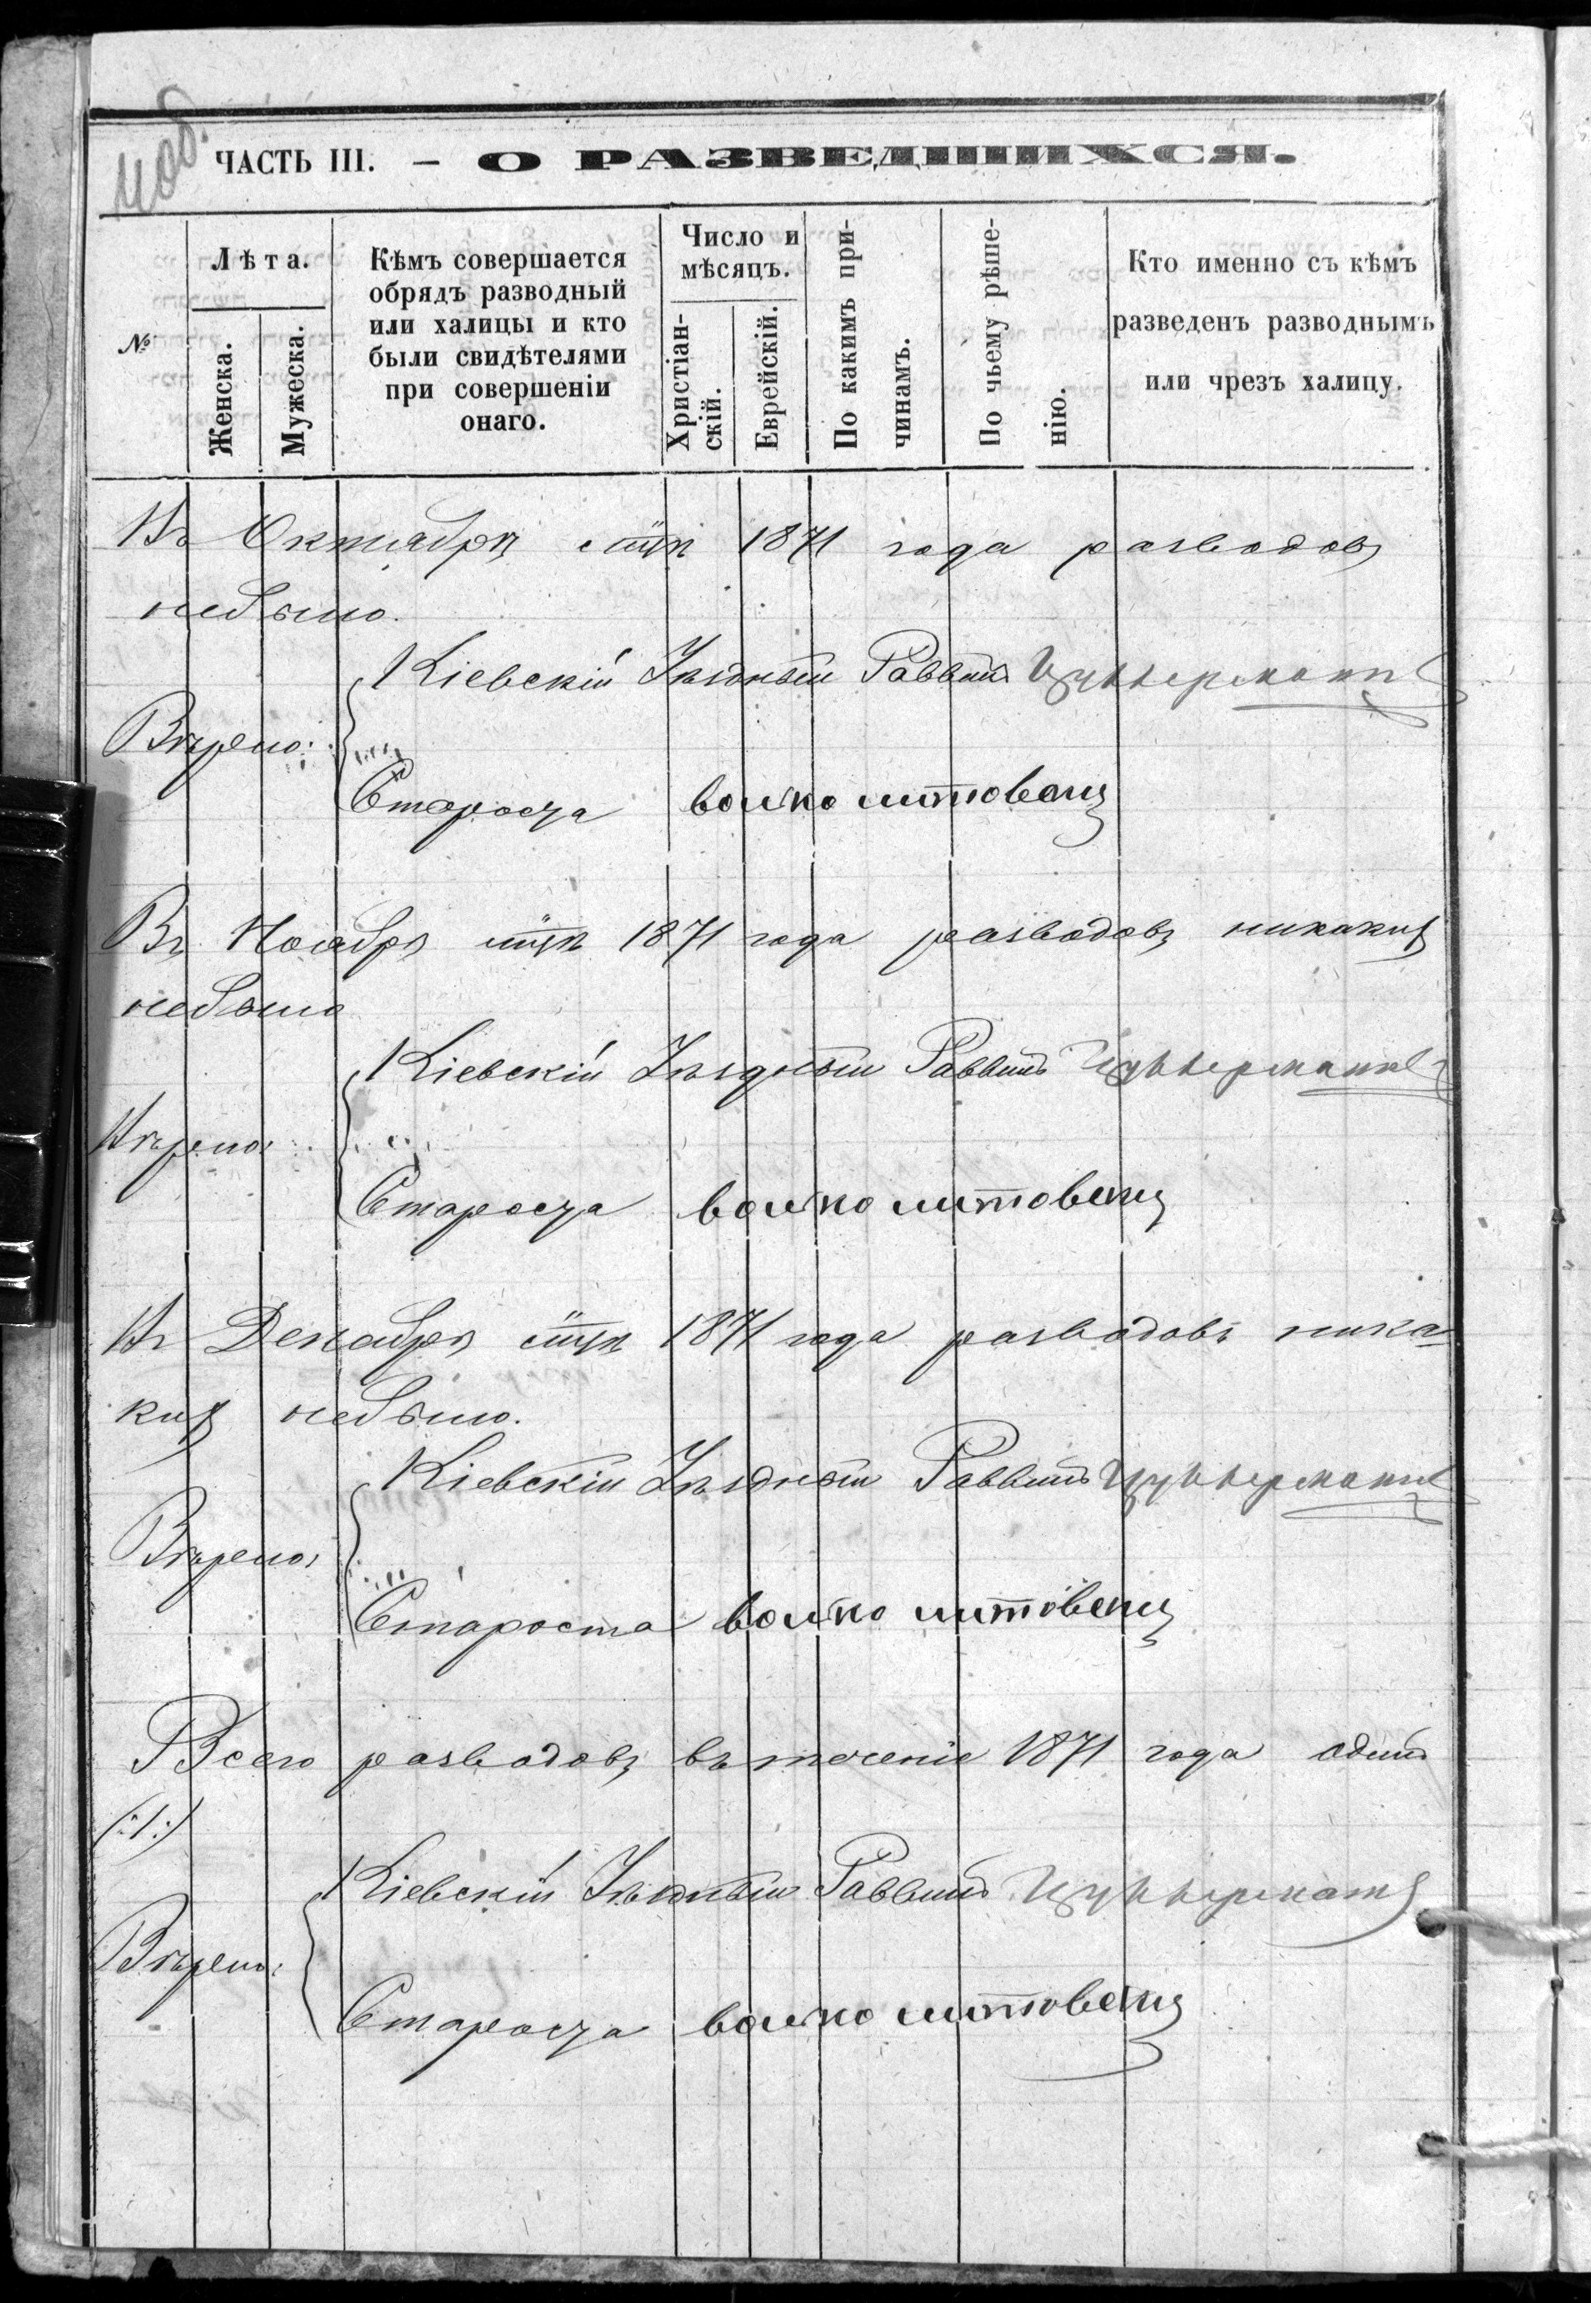 ЧАСТЬ III. — О РАЗВЕДШИХСЯ.
№
Лѣта.
Женска.
Мужеска.
Кѣмъ совершается
обрядъ разводный
или халицы и кто
были свидѣтелями
при совершеніи
онаго.
Число и
мѣсяцъ.
Христіан-
скій.
Еврейскій.
По какимъ при-
чинамъ.
По чьему рѣше-
нію.
Кто именно съ кѣмъ
разведенъ разводнымъ
или чрезъ халицу.
Въ Октябрѣ м-цѣ 1871 года разводовъ
небыло.
Кіевскій Уѣздный Раввинъ Цуккерманъ
Вѣрно:
Староста волко литовецъ
Въ Ноябрѣ м-цѣ 1871 года разводовъ никакихъ
небыло
Кіевскій Уѣздный Раввинъ Цуккерманъ
Вѣрно:
Староста волко литовецъ
Въ Декабрѣ м-цѣ 1871 года разводовъ ника-
кихъ небыло.
Кіевскій Уѣздный Раввинъ Цуккерманъ
Вѣрно:
Староста волко литовецъ
Всего разводовъ въ теченіе 1871 года одинъ
(:1:)
Кіевскій Уѣздный Раввинъ Цуккерманъ
Вѣрно:
Староста волко литовецъ